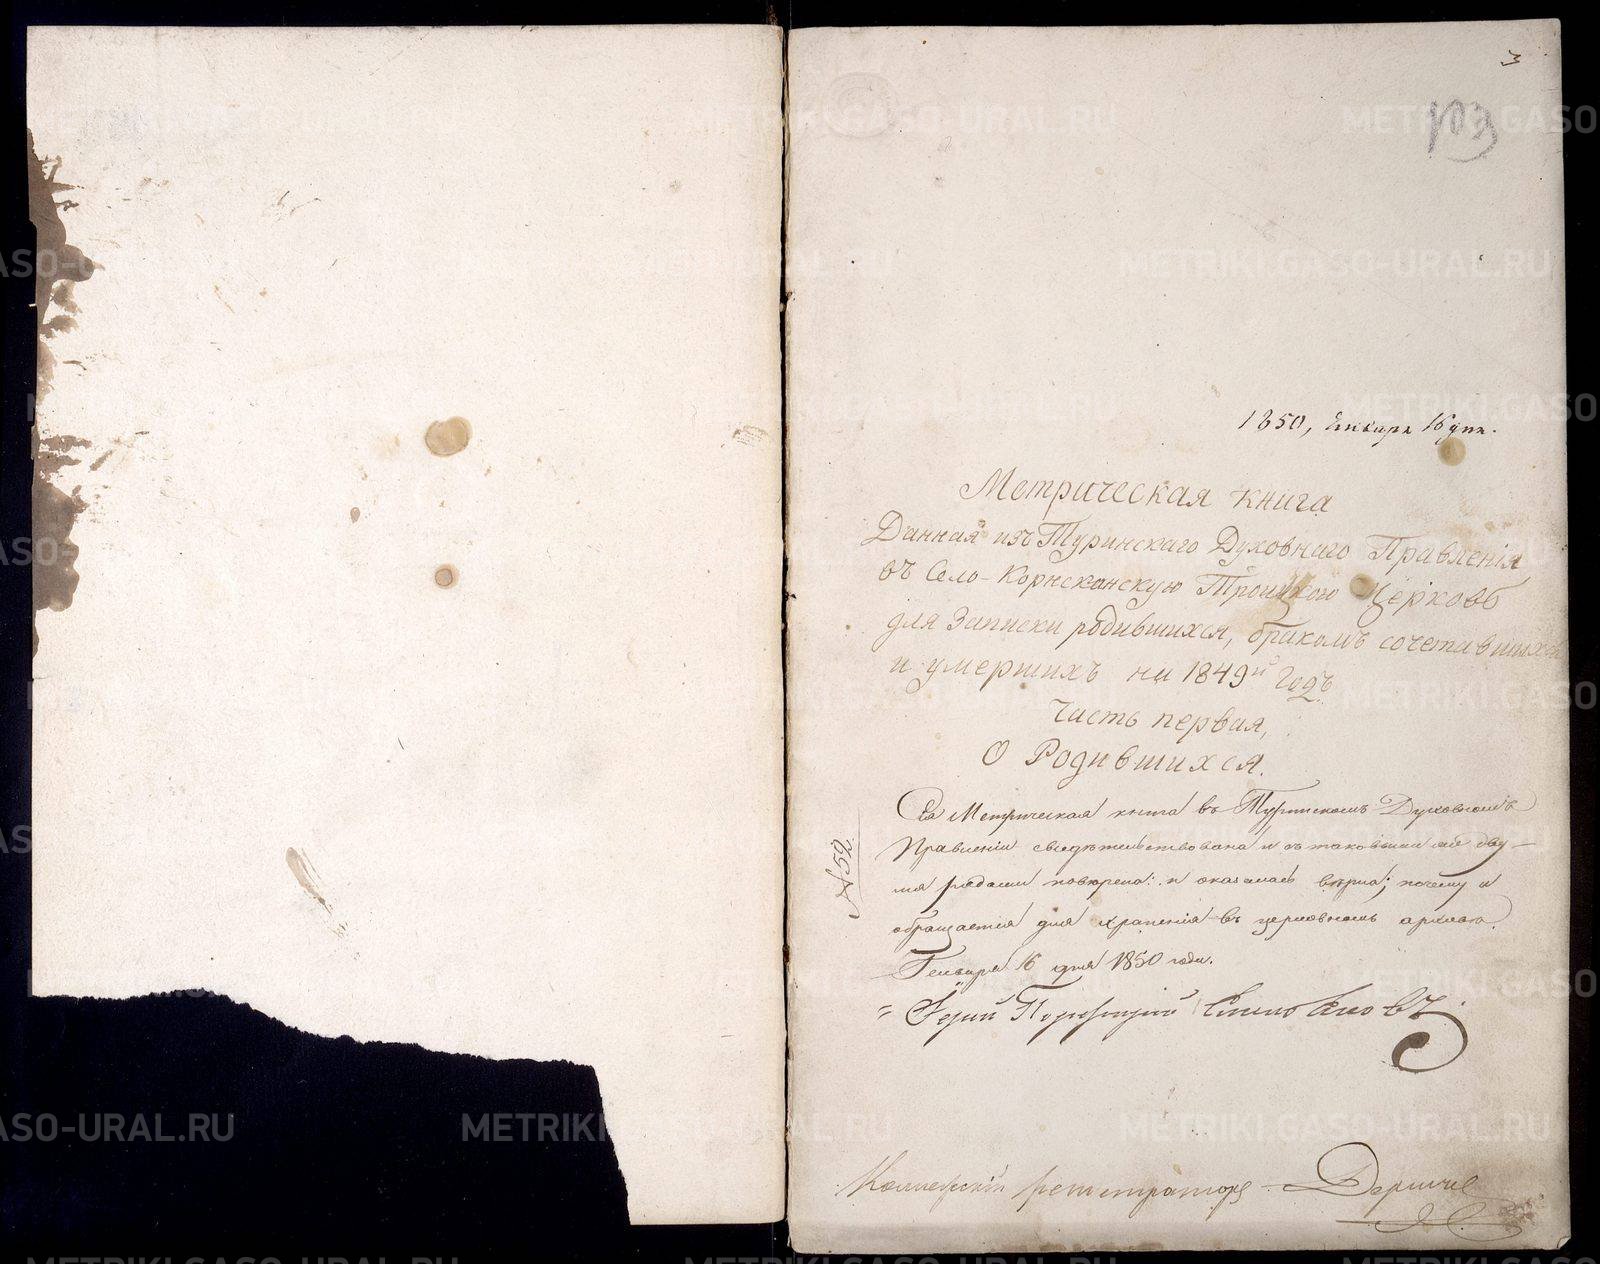 3
103
1850, Генваря 16 дня.
Метрическая книга
Данная изъ Туринскаго Духовнаго Правленія
въ Село-Корнсканскую Троицкою Церковь
для Записки родившихся, бракомъ сочетавшихся
и умершихъ на 1849й Годъ
Часть первая,
О Родившихся.
№ 52.
Сія Метрическая книга въ Туринскомъ Духовномъ
Правленіи свидѣтельствована и съ таковыми же дву-
мя рядами повѣрена: и оказалась вѣрна; почему и
обращается для храненія въ церковномъ архивѣ.
Генваря 16 дня 1850 года.
Іерей
Коллежскій регистраторъ
METRIKI.GASO-URAL.RU